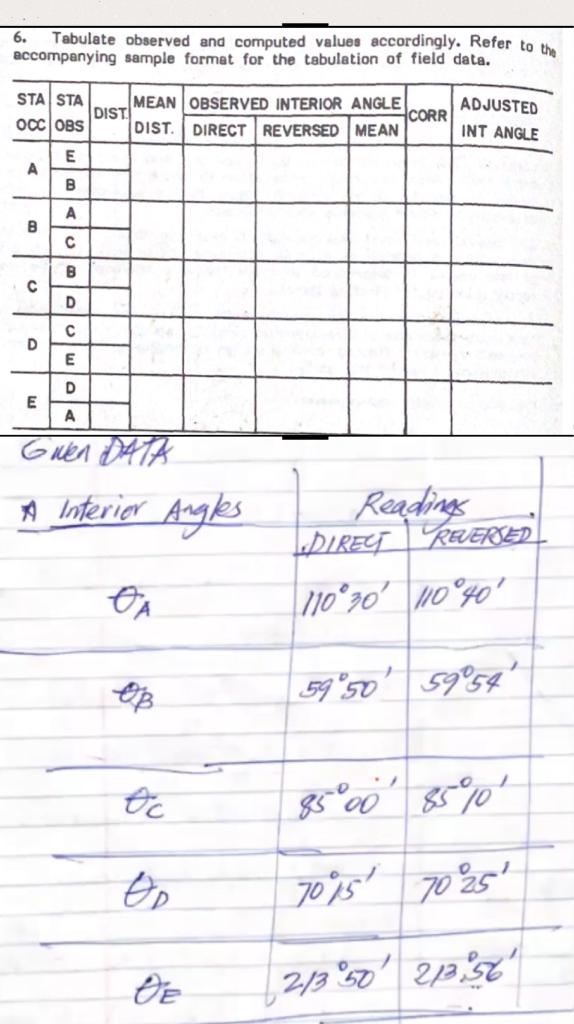 6. Tabulate observed and computed values accordingly. Refer to the
accompanying sample format for the tabulation of field data.
STA OCC STA OBS DIST. MEAN DIST. OBSERVED INTERIOR ANGLE CORR ADJUSTED INT ANGLE
DIRECT REVERSED MEAN
A E
B
B A
C
C B
D
D C
E
E D
A
Given DATA
A Interior Angles Readings
DIRECT REVERSED
θA 110°30' 110°40'
θB 59°50' 59°54'
θC 85°00' 85°10'
θD 70°15' 70°25'
θE 213°50' 213°56'